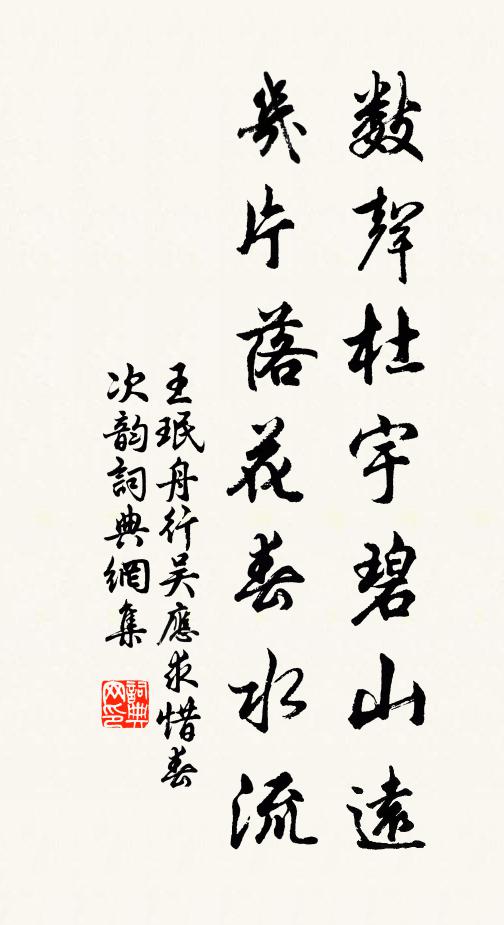 數聲杜宇碧山遠
幾片落花春水流
王珉舟行吳應求惜春
次韵詞典網集
詞典
网印